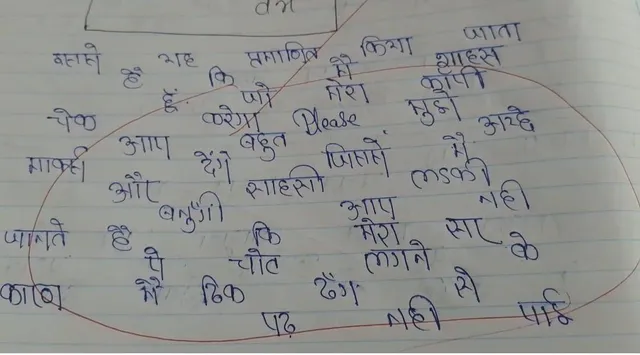 यह प्रमाणित किया जाता
हैं कि मैं शाहस
हैं. जो मेरा कॉपी
चेक करेगा Please मुझे
आप बहुत अच्छे
देंगे जिससे मैं
और साहसी लडकी
बनुगी आप नही
जानते हैं कि मेरा सार
पे चोट लगने के
कारण मैं ठिक ढंग से
पढ़ नही पाई